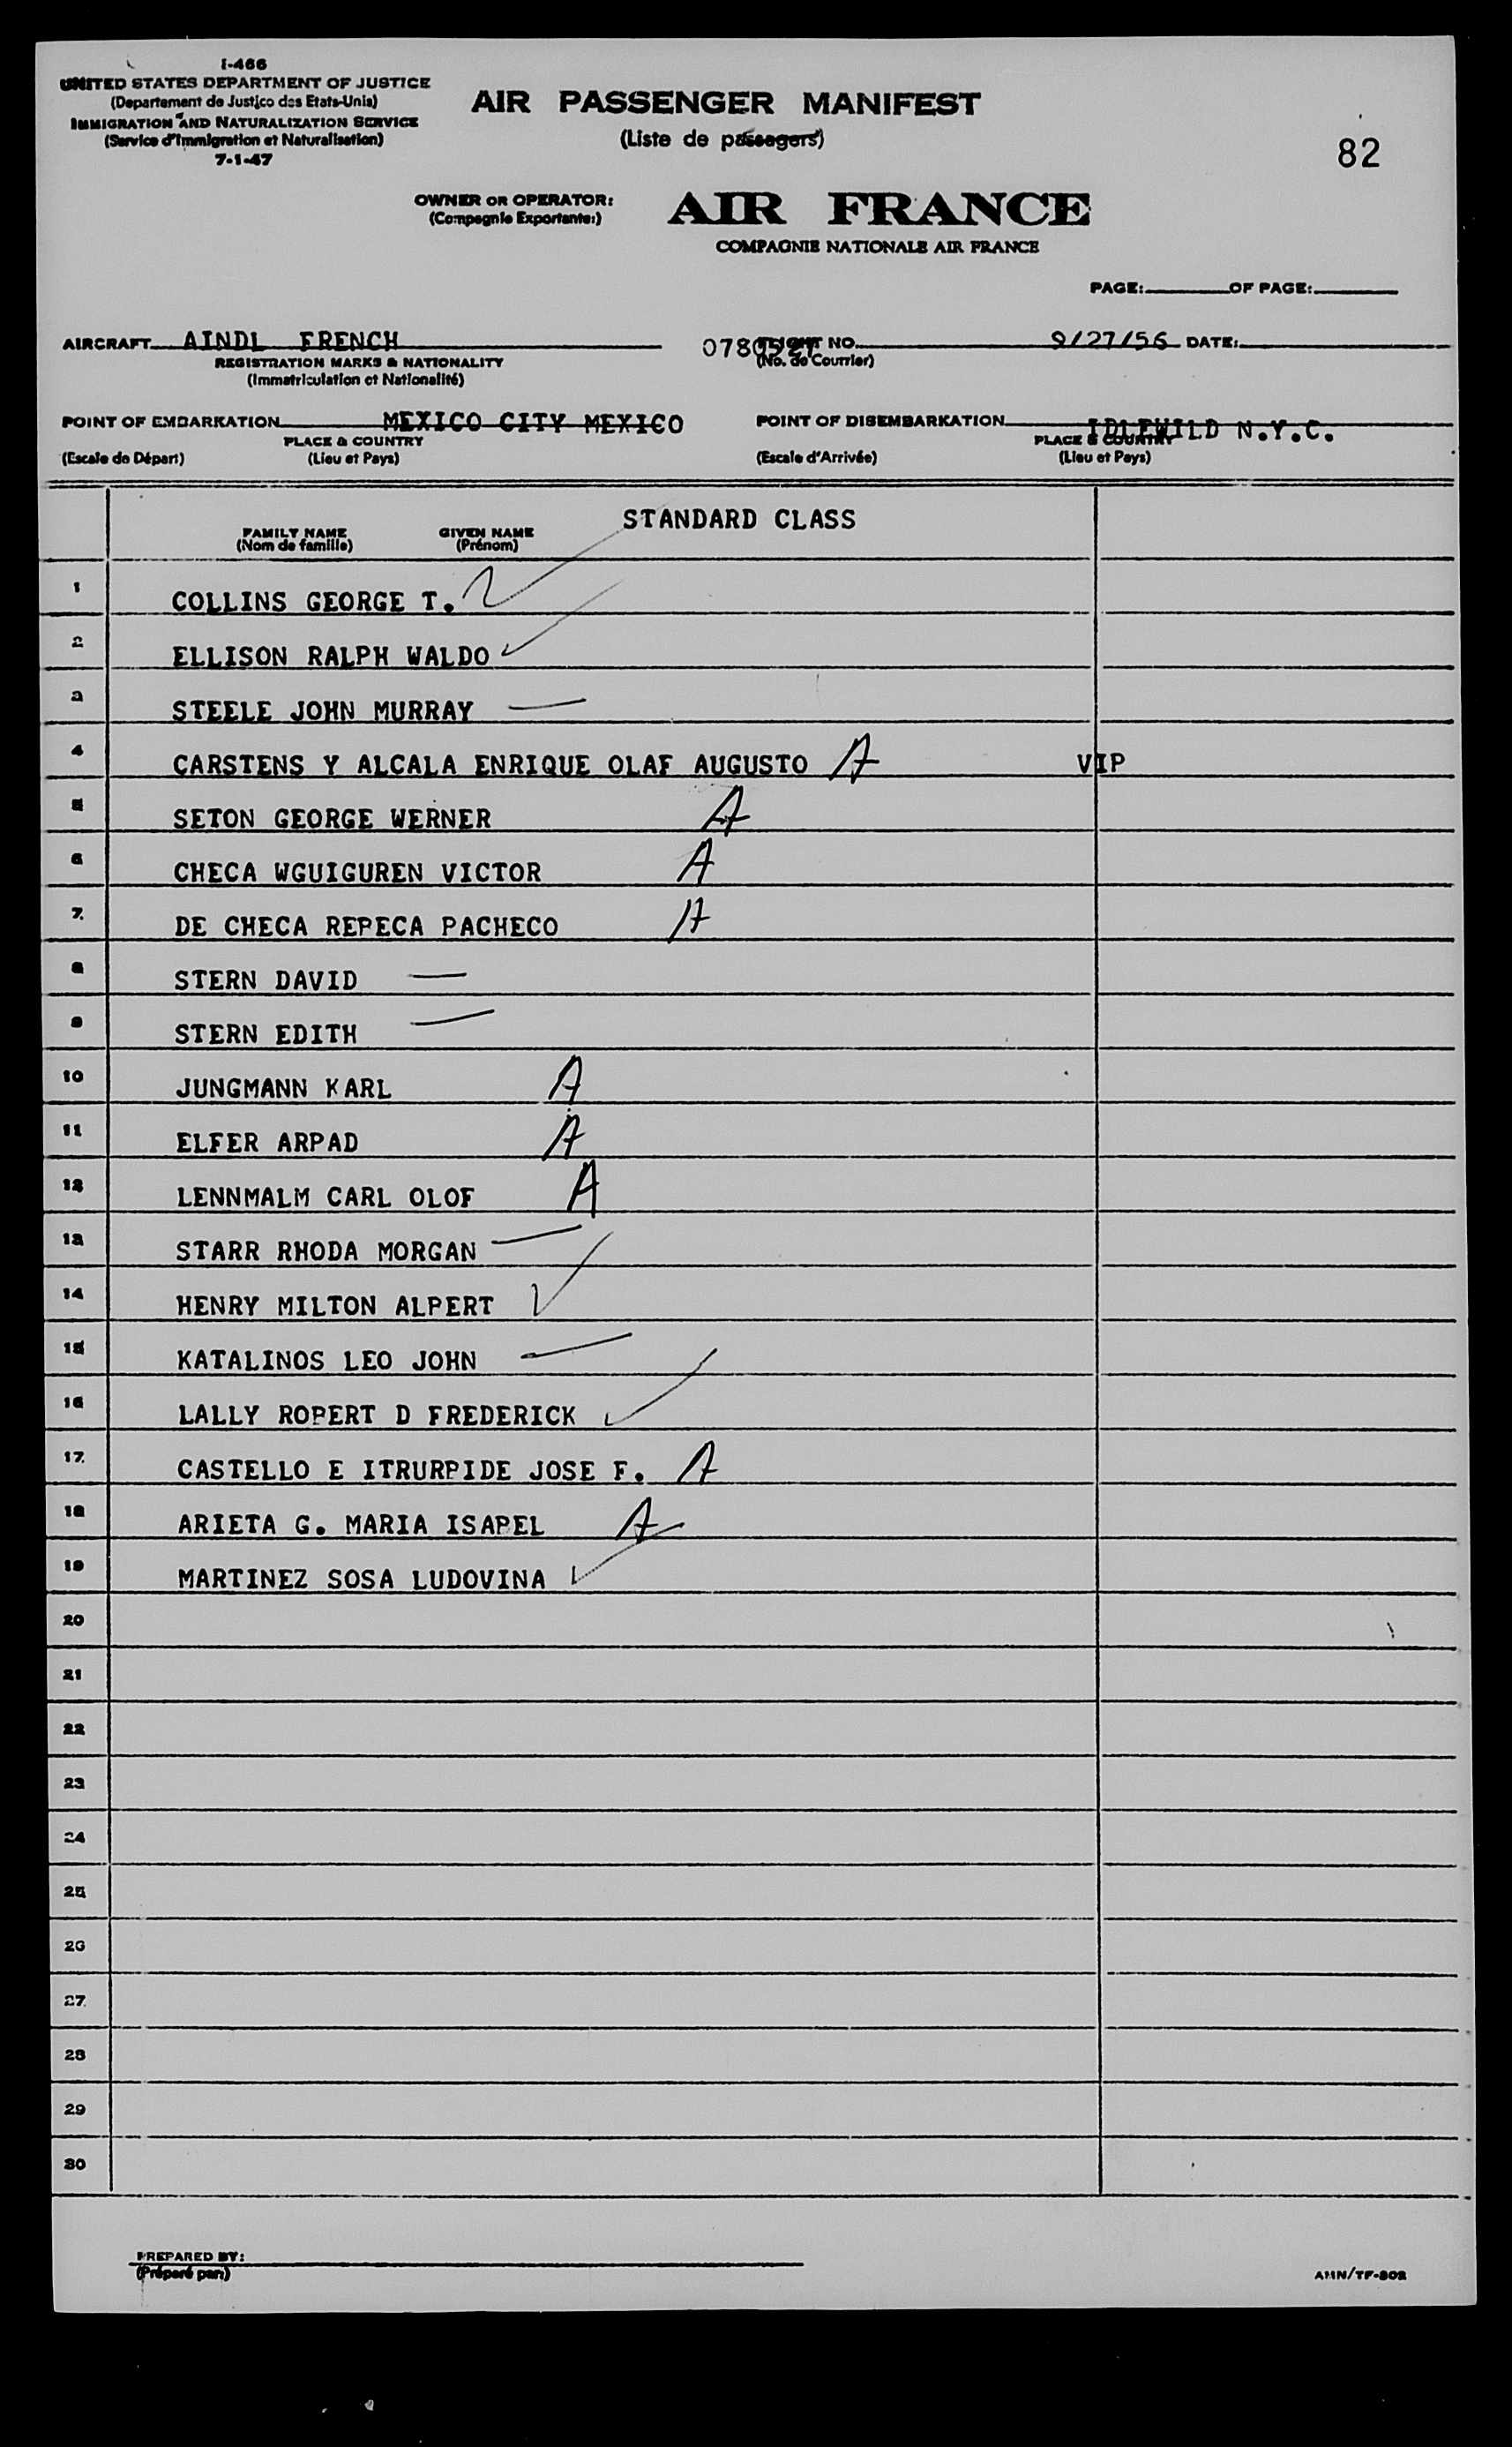 I-466
UNITED STATES DEPARTMENT OF JUSTICE
(Departement de Justice des Etats-Unis)
IMMIGRATION AND NATURALIZATION SERVICE
(Service d'Immigration et Naturalisation)
7-1-47
AIR PASSENGER MANIFEST
(Liste de passagers)
82
OWNER OR OPERATOR: AIR FRANCE
(Compagnie Exportante:)
COMPAGNIE NATIONALE AIR FRANCE
PAGE: OF PAGE:
AIRCRAFT AINDL FRENCH FLIGHT NO. 9/27/56 DATE:
REGISTRATION MARKS & NATIONALITY (No. de Courrier)
(Immatriculation et Nationalité)
POINT OF EMBARKATION MEXICO CITY MEXICO POINT OF DISEMBARKATION IDLEWILD N.Y.C.
PLACE & COUNTRY PLACE & COUNTRY
(Escale de Départ) (Lieu et Pays) (Escale d'Arrivée) (Lieu et Pays)
STANDARD CLASS
FAMILY NAME GIVEN NAME
(Nom de famille) (Prénom)
1 COLLINS GEORGE T.
2 ELLISON RALPH WALDO
3 STEELE JOHN MURRAY
4 CARSTENS Y ALCALA ENRIQUE OLAF AUGUSTO A VIP
5 SETON GEORGE WERNER A
6 CHECA WGUIGUREN VICTOR A
7. DE CHECA REPECA PACHECO A
8 STERN DAVID
9 STERN EDITH
10 JUNGMANN KARL A
11 ELFER ARPAD A
12 LENNMALM CARL OLOF A
13 STARR RHODA MORGAN
14 HENRY MILTON ALPERT
15 KATALINOS LEO JOHN
16 LALLY ROPERT D FREDERICK
17. CASTELLO E ITRURPIDE JOSE F. A
18 ARIETA G. MARIA ISAPEL A
19 MARTINEZ SOSA LUDOVINA
20
21
22
23
24
25
26
27.
28
29
30
PREPARED BY:
(Préparé par:)